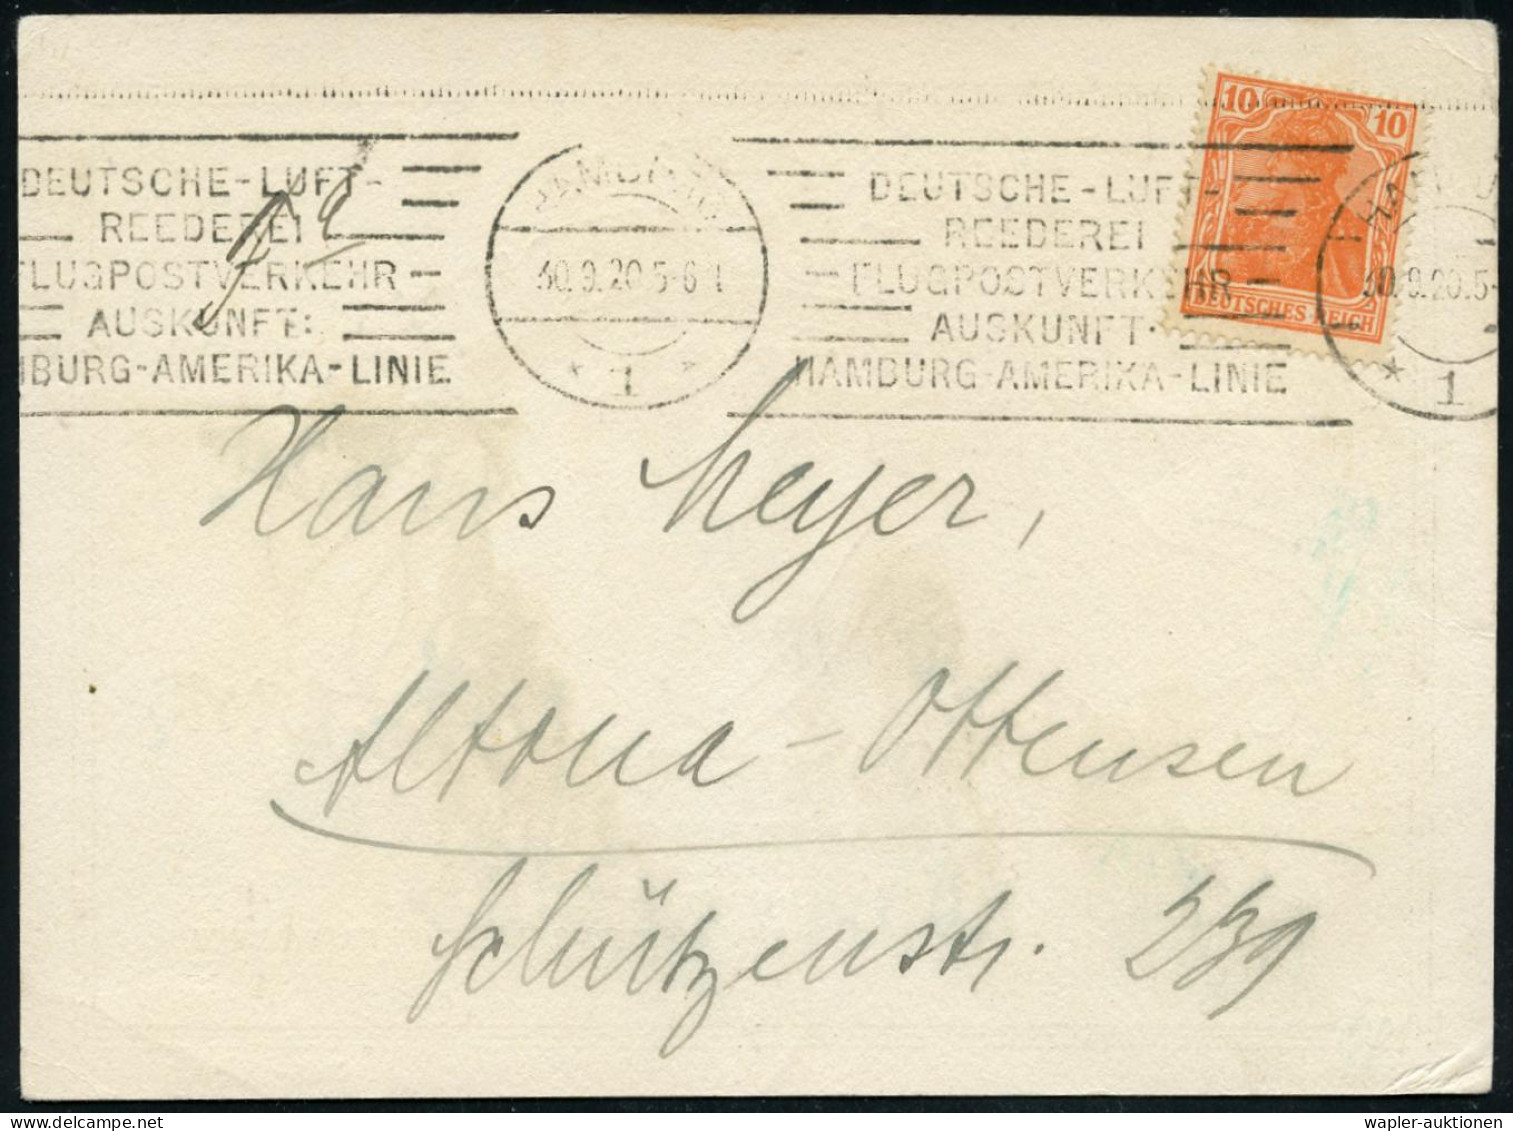 10 10
DEUTSCHES REICH
DEUTSCHE-LUFT-
REEDEREI
FLUGPOSTVERKEHR
AUSKUNFT:
MBURG-AMERIKA-LINIE
HAMBURG
30.9.20.5-6 N
* 1 *
DEUTSCHE-LUFT-
REEDEREI
FLUGPOSTVERKEHR
AUSKUNFT:
HAMBURG-AMERIKA-LINIE
HAMBU
30.9.20.5-
* 1
Hans Meyer,
Altona-Ottensen
Schützenstr. 239
wapler-auktionen